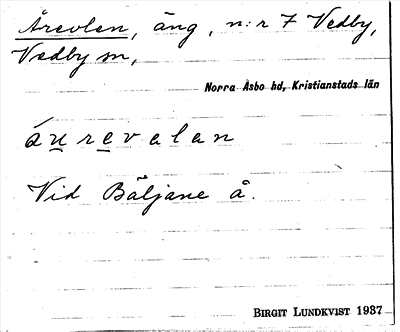 Årevolen, äng, n:r 7 Vedby,
Vedby sn,
Norra Åsbo hd, Kristianstads län
áu̲re̲valan
Vid Bäljane å.
BIRGIT LUNDKVIST 1937